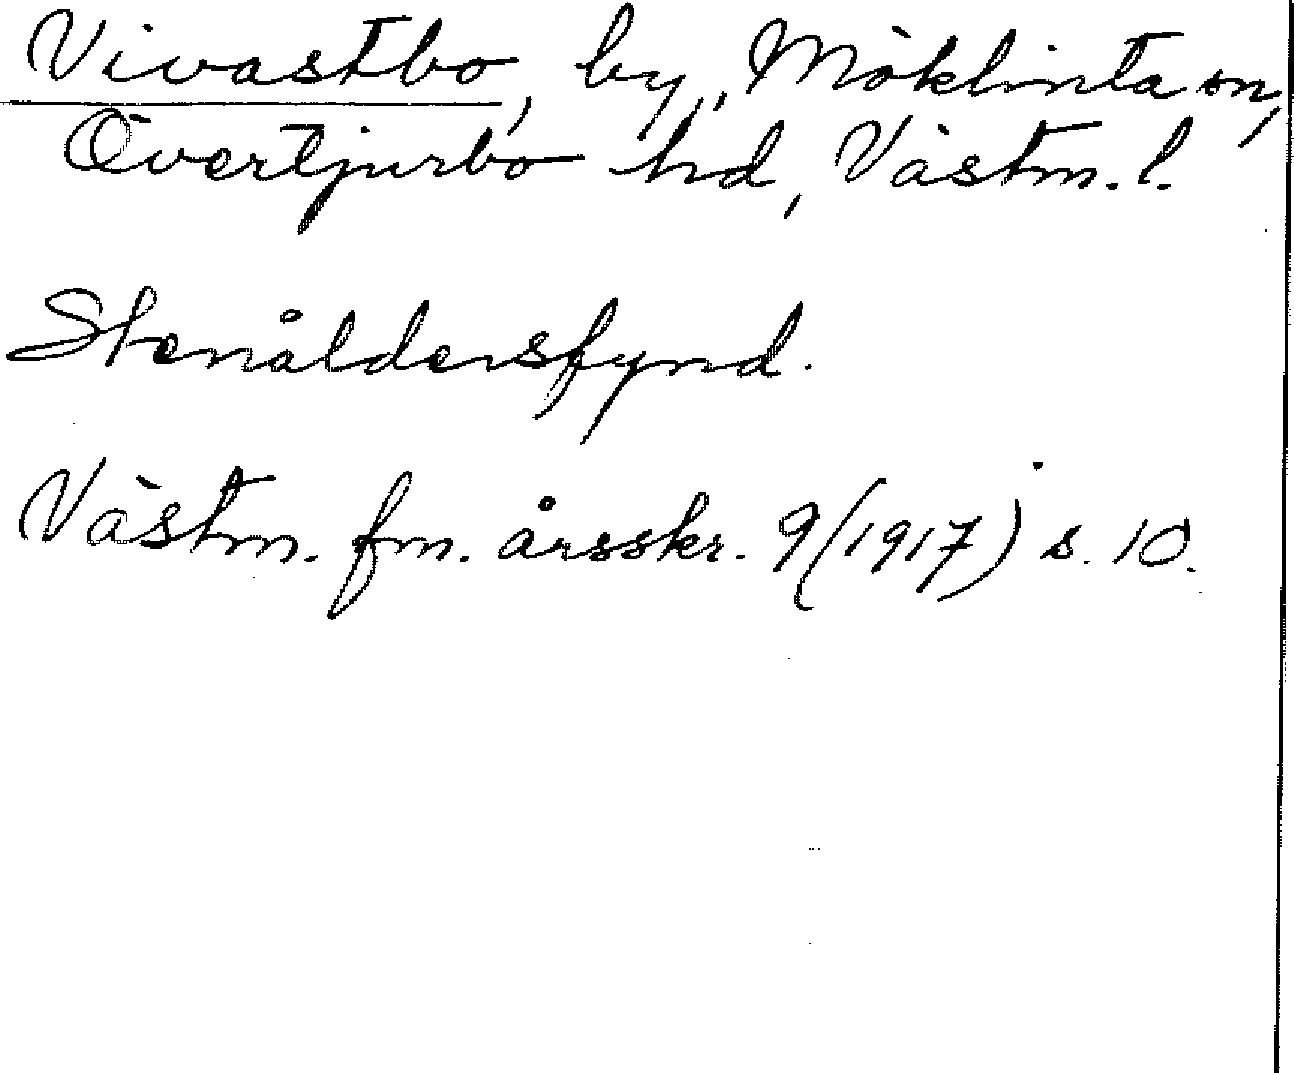 Vivastbo, by, Möklinta sn,
Övertjurbo hd, Västm. l.
Stenåldersfynd.
Västm. fm. årsskr. 9 (1917) s. 10.